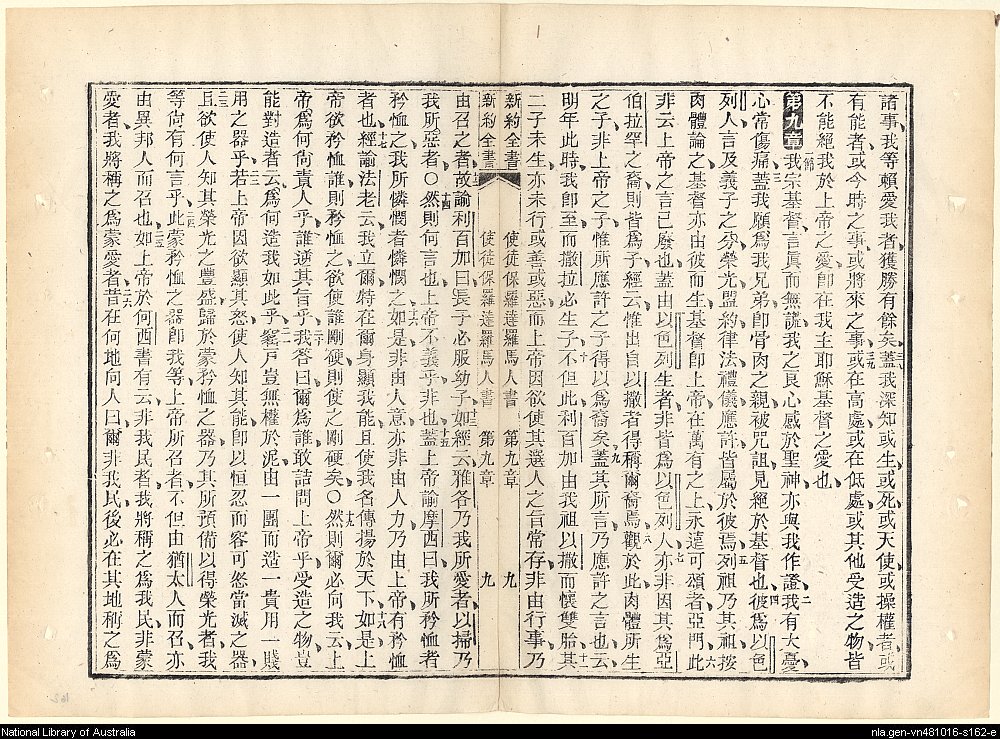 諸事我等賴愛我者獲勝有餘矣蓋我深知或生或死或天使或操權者或
有能者或今時之事或將來之事或在高處或在低處或其他受造之物皆
不能絕我於上帝之愛卽在我主耶穌基督之愛也
第九章我宗基督言眞而無謊我之良心感於聖神亦與我作證我有大憂
心常傷痛蓋我願爲我兄弟卽骨肉之親被咒詛見絕於基督也彼爲以色
列人言及義子之分榮光盟約律法禮儀應許皆屬於彼焉列祖乃其祖按
肉體論之基督亦由彼而生基督卽上帝在萬有之上永遠可頌者亞門此
非云上帝之言已廢也蓋由以色列生者非皆爲以色列人亦非因其爲亞
伯拉罕之裔則皆爲子經云惟出自以撒者得稱爾裔焉觀於此肉體所生
之子非上帝之子惟所應許之子得以爲裔矣蓋其所言乃應許之言也云
明年此時我卽至而撒拉必生子不但此利百加由我祖以撒而懷雙胎其
二子未生亦未行或善或惡而上帝因欲使其選人之旨常存非由行事乃
新約全書 使徒保羅達羅馬人書 第九章 九
新約全書 使徒保羅達羅馬人書 第九章 九
由召之者故諭利百加曰長子必服幼子如經云雅各乃我所愛者以掃乃
我所惡者○然則何言也上帝不義乎非也蓋上帝諭摩西曰我所矜恤者
矜恤之我所憐憫者憐憫之如是非由人意亦非由人力乃由上帝有矜恤
者也經諭法老云我立爾特在爾身顯我能且使我名傳揚於天下如是上
帝欲矜恤誰則矜恤之欲使誰剛硬則使之剛硬矣○然則爾必向我云上
帝爲何尙責人乎誰逆其旨乎我答曰爾爲誰敢詰問上帝乎受造之物豈
能對造者云爲何造我如此乎窰戶豈無權於泥由一團而造一貴用一賤
用之器乎若上帝因欲顯其怒使人知其能卽以恒忍而容可怒當滅之器
且欲使人知其榮光之豐盛歸於蒙矜恤之器乃其所預備以得榮光者我
等尙有何言乎此蒙矜恤之器卽我等上帝所召者不但由猶太人而召亦
由異邦人而召也如上帝於何西書有云非我民者我將稱之爲我民非蒙
愛者我將稱之爲蒙愛者昔在何地向人曰爾非我民後必在其地稱之爲
National Library of Australia
nla.gen-vn481016-s162-e